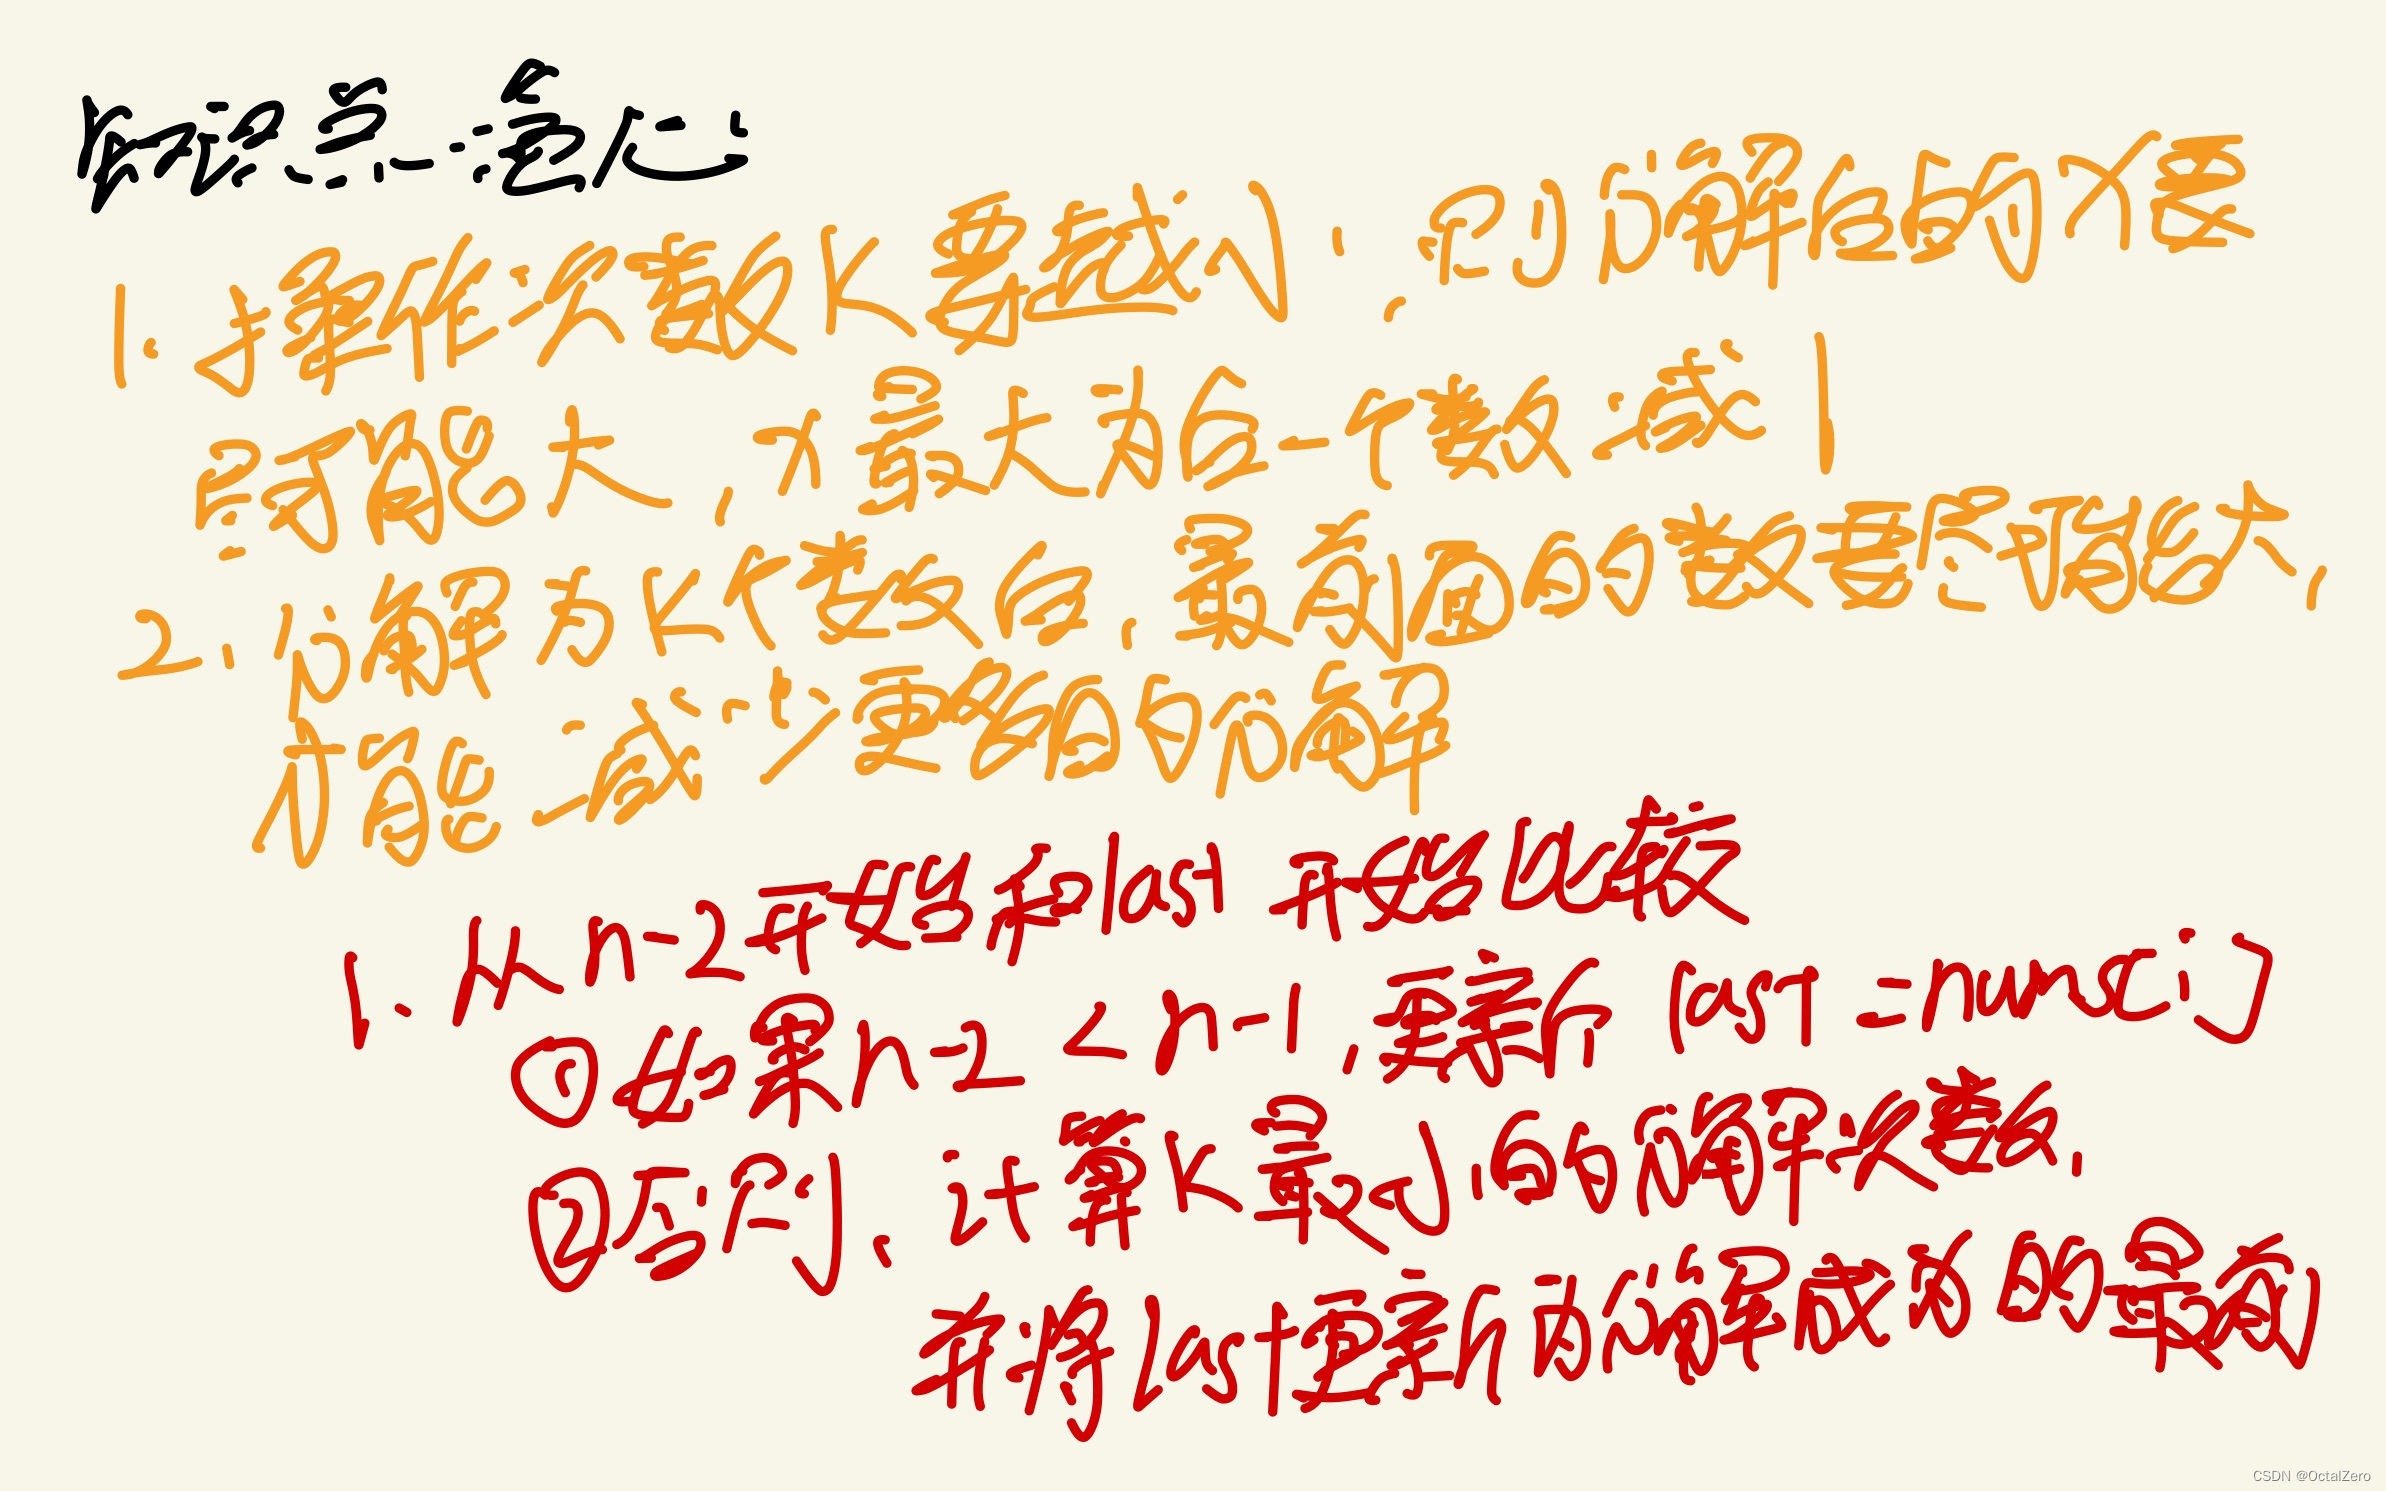 知识点：贪心
1. 操作次数K要越小，则分解后的个数
尽可能大，个最大为后一个数减1
2. 分解为K个数后，最前面的数要尽可能大，
才能减少更多的分解
1. 从n-2开始和last开始比较
①如果n-2<n-1,更新last=nums[i]
②否则，计算K最小的分解次数，
并将last更新为分解成为的最前
CSDN @OctalZero